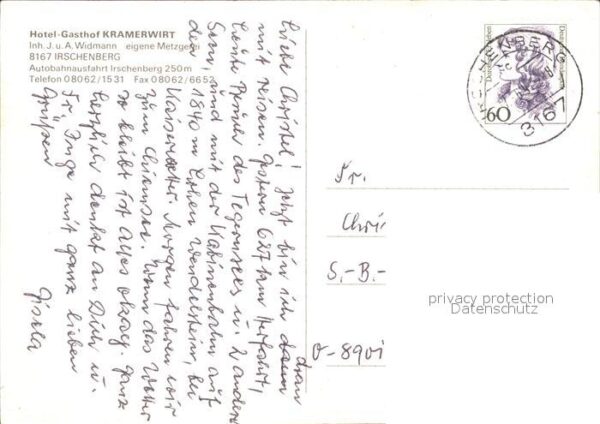 Hotel-Gasthof KRAMERWIRT
Inh. J. u. A. Widmann eigene Metzgerei
8167 IRSCHENBERG
Autobahnausfahrt Irschenberg 250 m
Telefon 08062/1531 Fax 08062/6652
Liebe Christel! Jetzt bin ich dran
mit reisen. Gestern 627 km Herfahrt,
heute Rings des Tegernsees u. 2 andere
Seen, und mit der Kabinenbahn auf
den 1840 m hohen Wendelstein, bei
Kaiserwetter. Morgen fahren wir
zum Chiemsee. Wenn das Wetter
so bleibt ist alles okay. Ganz
herzlich denkt an Dich u.
Fr. Inge mit ganz lieben
Grüßen
Gisela
Deutsche Bundespost
60
8167
Fr.
Chri
S.-B.-
O-8901
privacy protection
Datenschutz